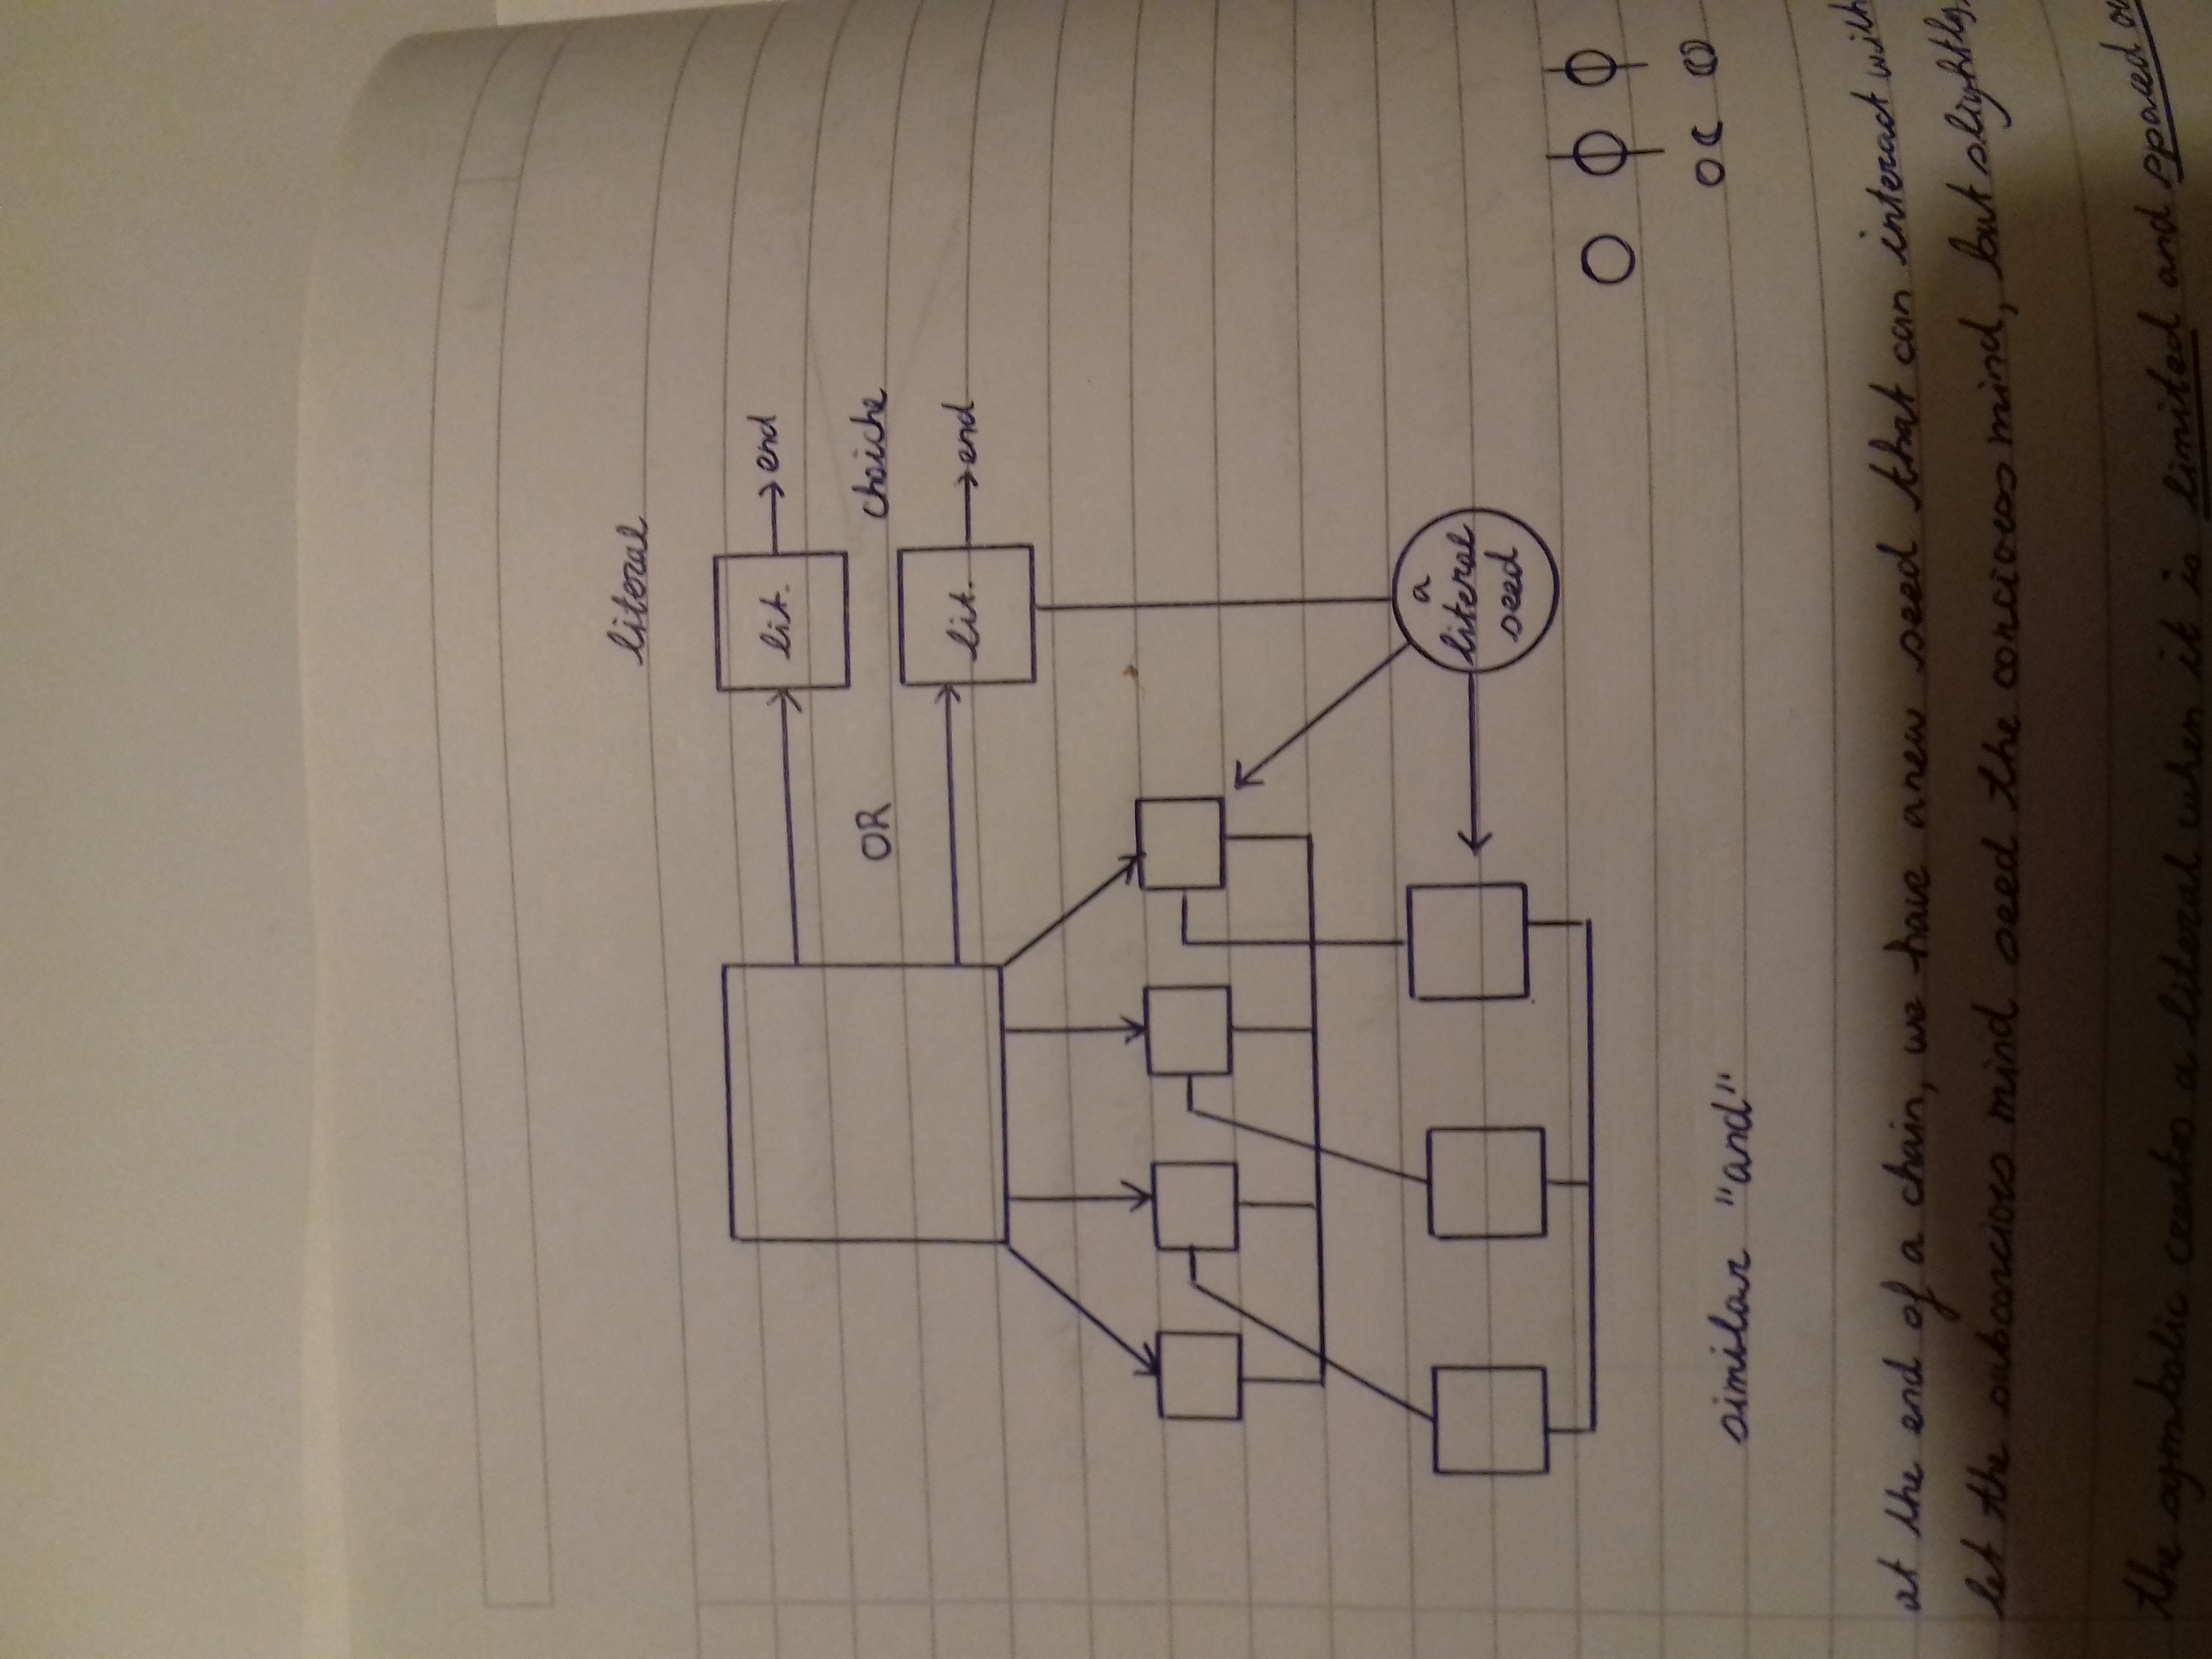 literal
lit. → end
OR choiche
lit. → end
a
literal
seed
similar "and"
at the end of a chain, we have a new seed that can interact with
let the subconcious mind seed the concioess mind, but slightly,
the symbolic creates a literal when it is limited and spaced